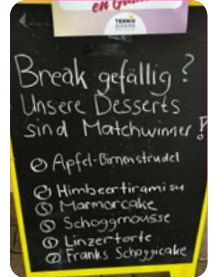 en G
TENNIS
Break gefällig?
Unsere Desserts
sind Matchwinner!
Apfel-Birnenstrudel
Himbeertiramisu
Marmorcake
Schoggmousse
Linzertorte
Franks Schoggicake